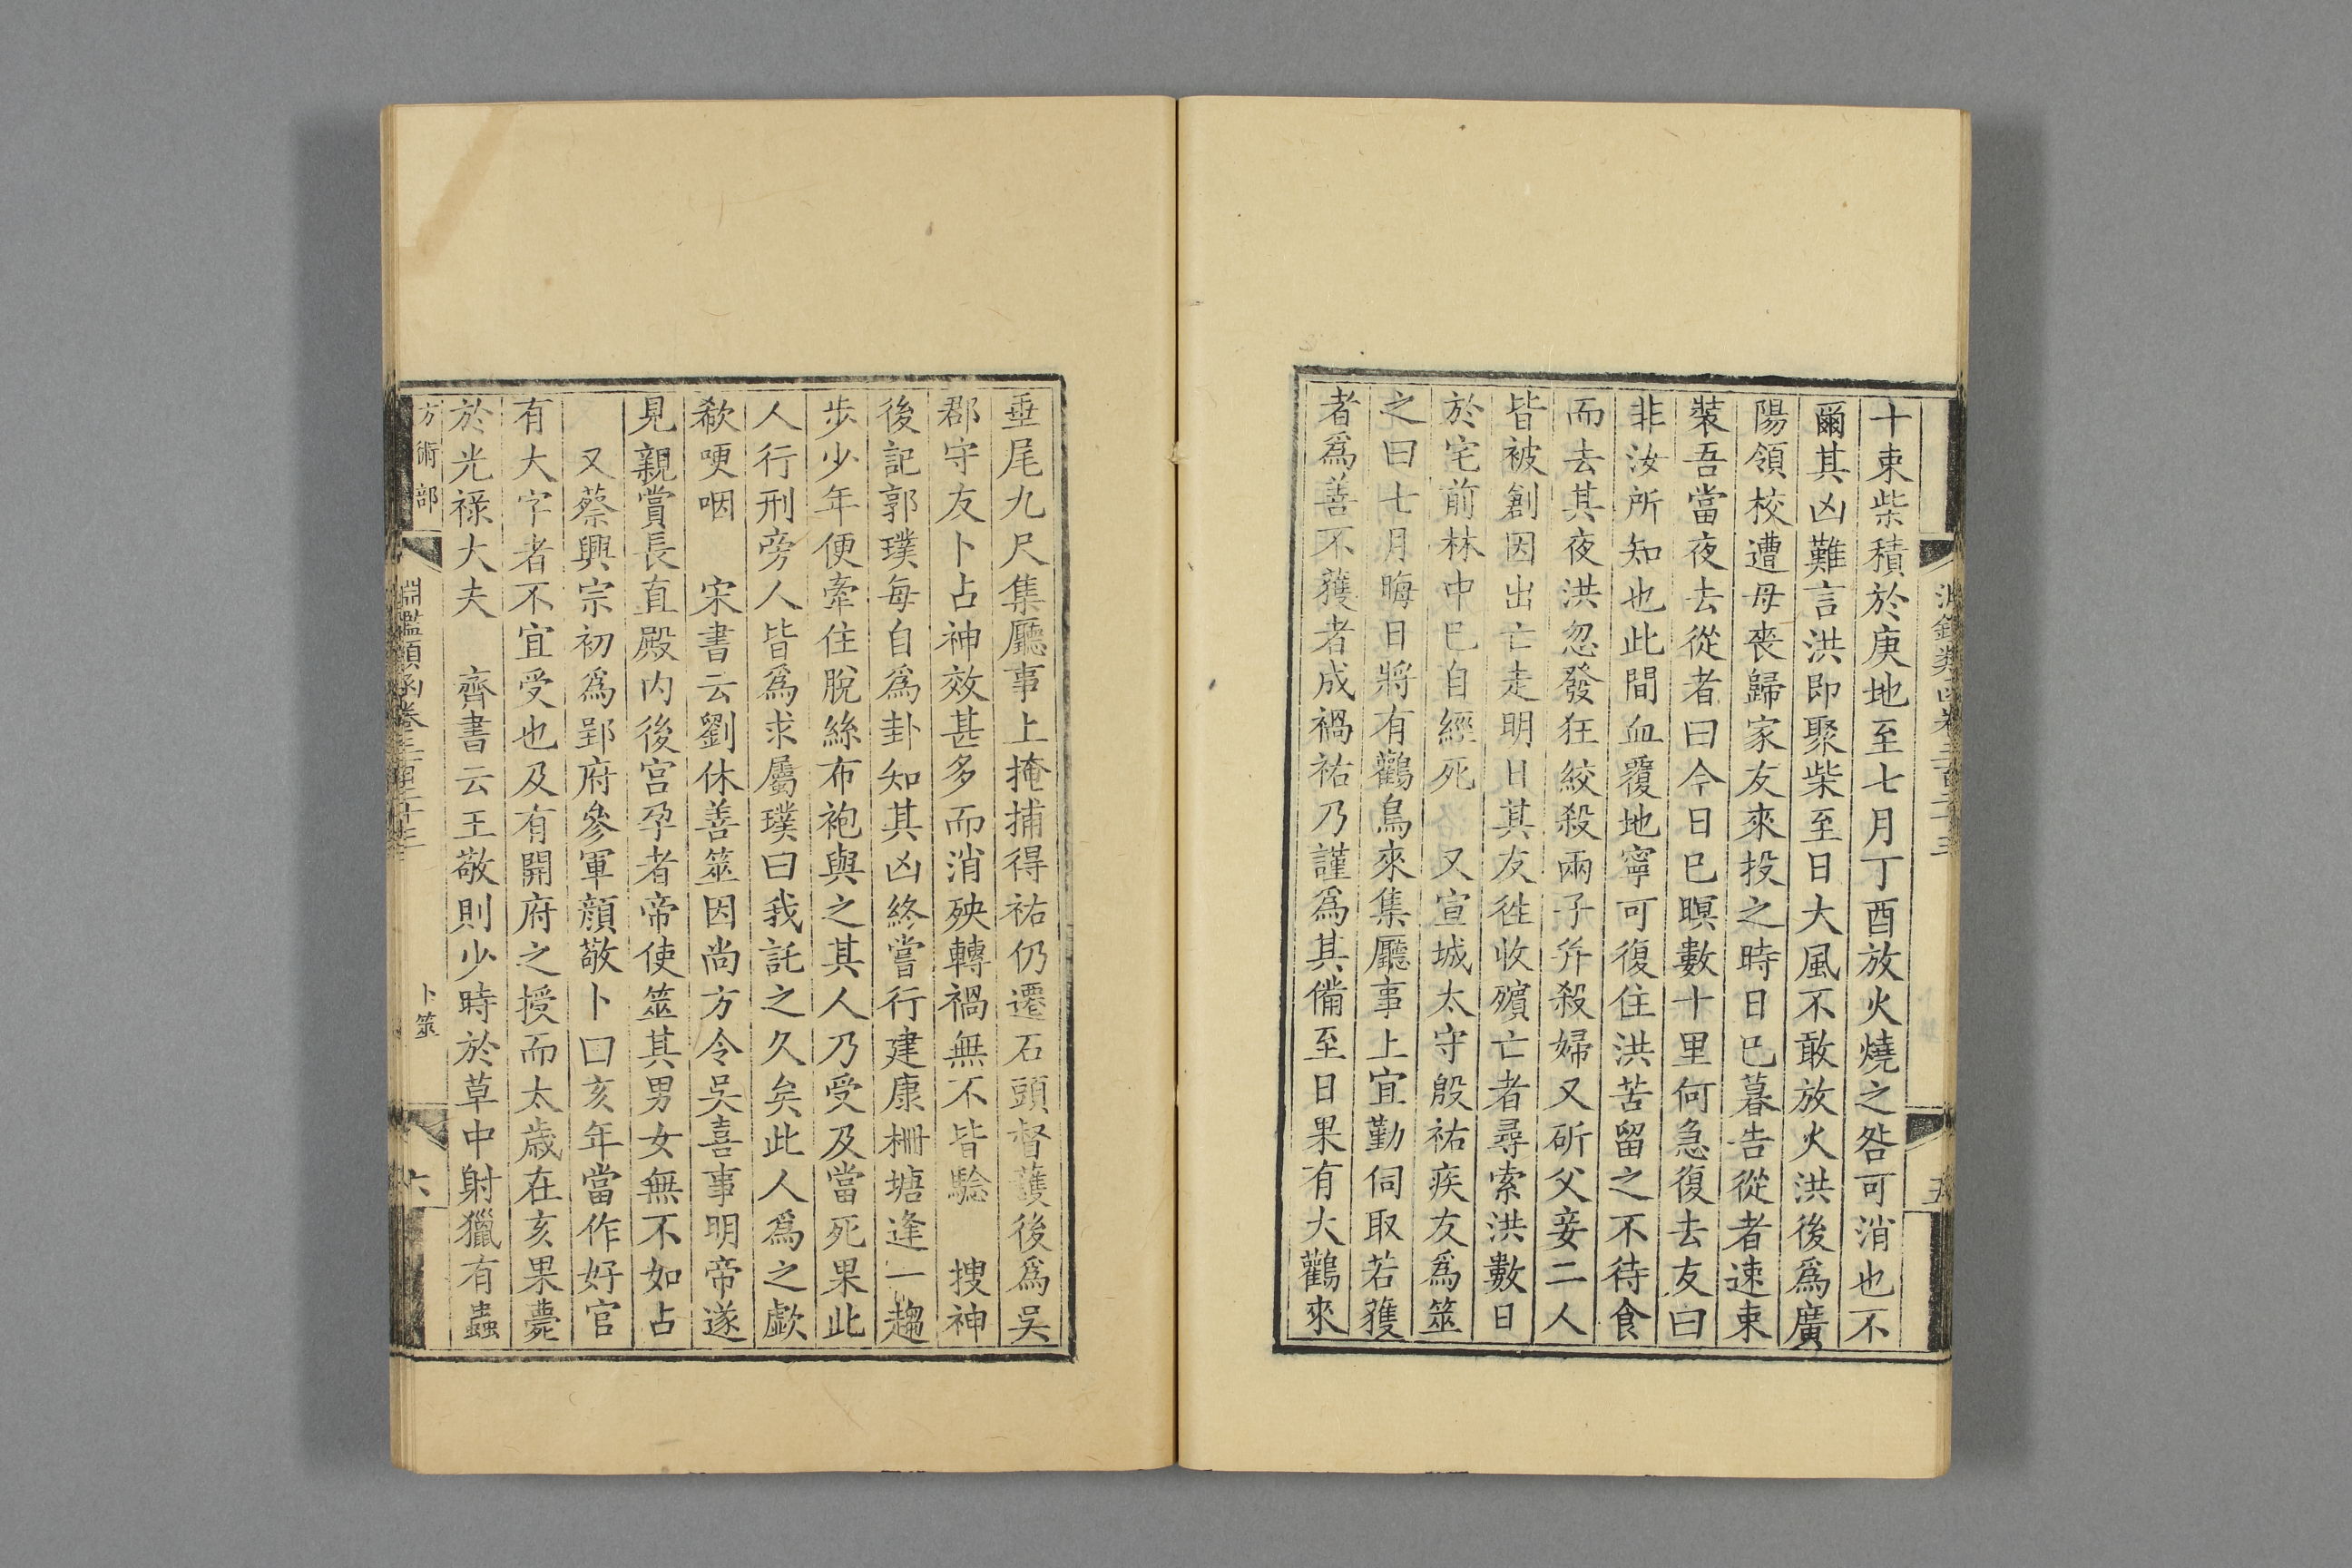 十束柴積於庚地至七月丁酉放火燒之咎可消也不
爾其凶難言洪即聚柴至日大風不敢放火洪後爲廣
陽領校遭母喪歸家友來投之時日巳暮告從者速束
裝吾當夜去從者曰今日巳暝數十里何急復去友曰
非汝所知也此間血覆地寧可復住洪苦留之不待食
而去其夜洪忽發狂絞殺兩子并殺婦又斫父妾二人
皆被創因出亡走明日其友徃收殯亡者尋索洪數日
於宅前林中巳自經死 又宣城太守殷祐疾友爲筮
之曰七月晦日將有鸛鳥來集廳事上宜勤伺取若獲
者爲善不獲者成禍祐乃謹爲其備至日果有大鸛來
垂尾九尺集廳事上掩捕得祐仍遷石頭督護後爲吳
郡守友卜占神效甚多而消殃轉禍無不皆驗 搜神
後記郭璞每自爲卦知其凶終嘗行建康柵塘逢一趨
步少年便牽住脫絲布袍與之其人乃受及當死果此
人行刑旁人皆爲求屬璞曰我託之久矣此人爲之歔
欷哽咽 宋書云劉休善筮因尚方令吳喜事明帝遂
見親賞長直殿内後宮孕者帝使筮其男女無不如占
又蔡興宗初爲郢府參軍顏敬卜曰亥年當作好官
有大字者不宜受也及有開府之授而太歲在亥果薨
於光祿大夫 齊書云王敬則少時於草中射獵有蟲
方術部
淵鑑類函卷三百二十三
卜筮
六